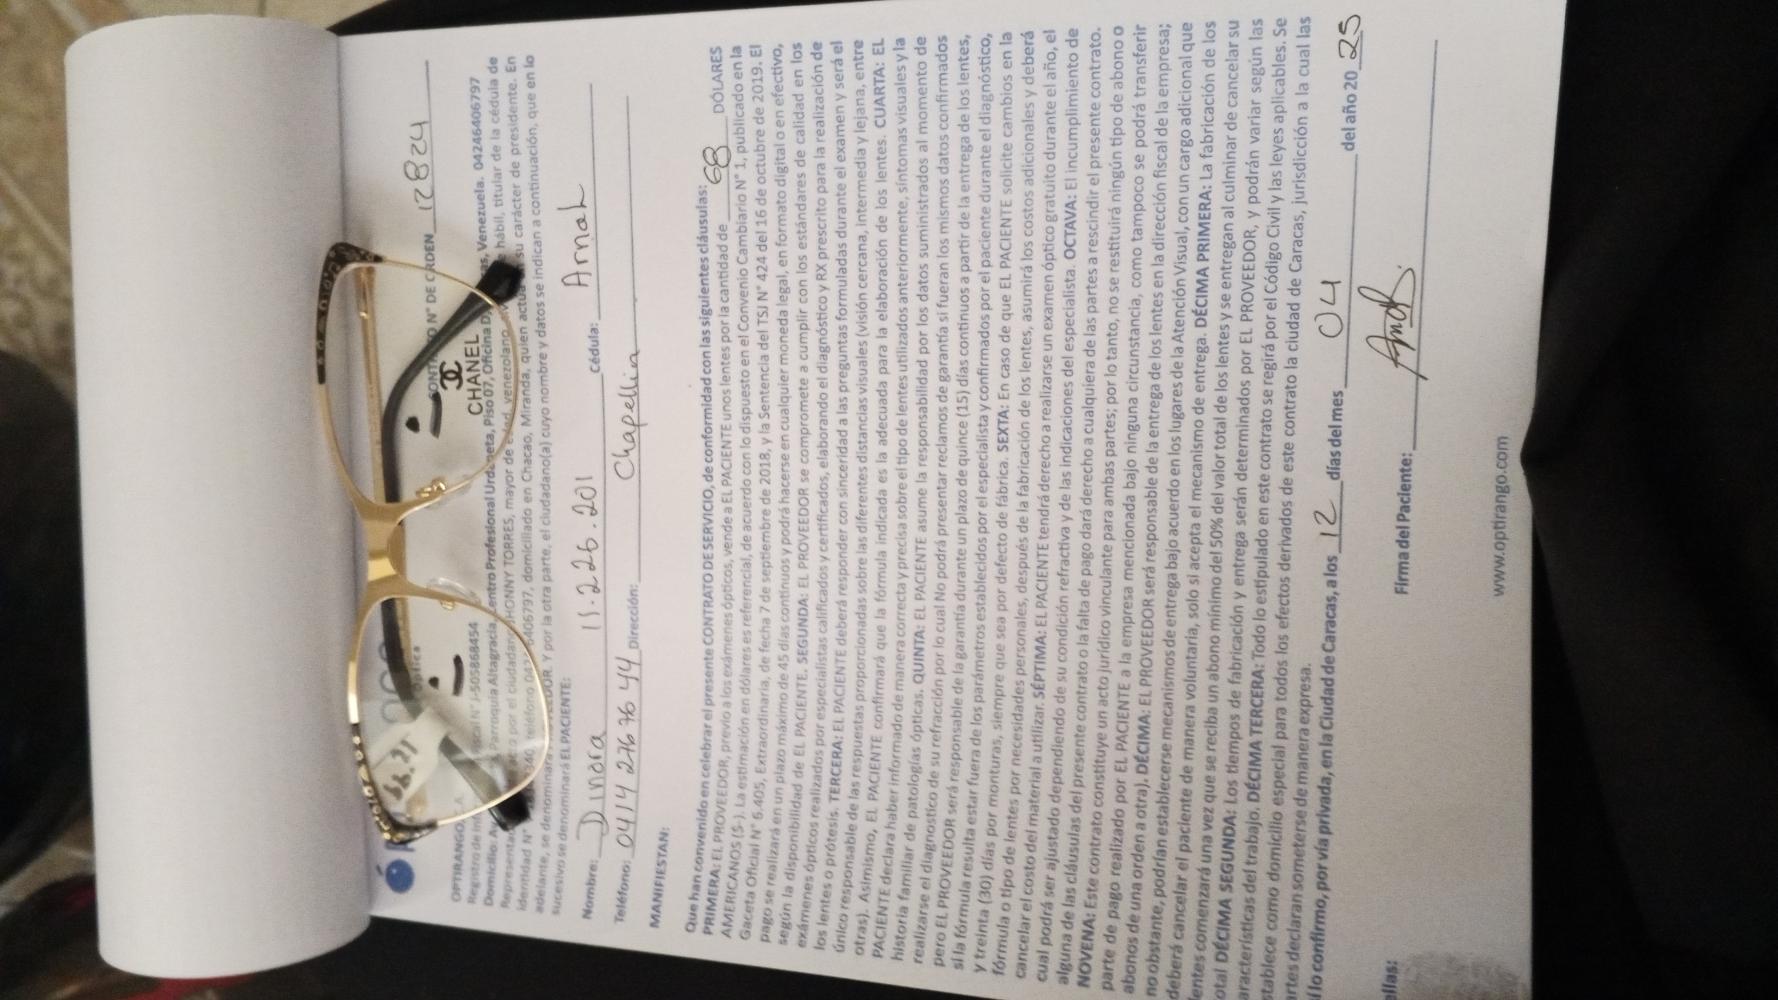 CONTRATO N° DE ORDEN 12824
CHANEL
56.21
Óptica
OPTIRANGO, C.A.
J-505868454
Domicilio: Parroquia Altagracia, Centro Profesional Urdaneta, Piso 07, Oficina D, Venezuela. 04246406797
por el ciudadano JHONNY TORRES, mayor de edad, venezolano, hábil, titular de la cédula de
identidad N° teléfono domiciliado en Chacao, Miranda, quien actúa su carácter de presidente. En
adelante, se denominará Y por la otra parte, el ciudadano(a) cuyo nombre y datos se indican a continuación, que en lo
sucesivo se denominará EL PACIENTE:
Nombre: Dinora 11.226.201 Cédula: Amah
Teléfono: 0414 276 76 44 Dirección: Chapellin
MANIFIESTAN:
Que han convenido en celebrar el presente CONTRATO DE SERVICIO, de conformidad con las siguientes cláusulas:
PRIMERA: EL PROVEEDOR, previo a los exámenes ópticos, vende a EL PACIENTE unos lentes por la cantidad de 68 DÓLARES
AMERICANOS (S-). La estimación en dólares es referencial, de acuerdo con lo dispuesto en el Convenio Cambiario N° 1, publicado en la
Gaceta Oficial N° 6.405, Extraordinaria, de fecha 7 de septiembre de 2018, y la Sentencia del TSJ N° 424 del 16 de octubre de 2019. El
pago se realizará en un plazo máximo de 45 días continuos y podrá hacerse en cualquier moneda legal, en formato digital o en efectivo,
según la disponibilidad de EL PACIENTE. SEGUNDA: EL PROVEEDOR se compromete a cumplir con los estándares de calidad en los
exámenes ópticos realizados por especialistas calificados y certificados, elaborando el diagnóstico y RX prescrito para la realización de
los lentes o prótesis. TERCERA: EL PACIENTE deberá responder con sinceridad a las preguntas formuladas durante el examen y será el
único responsable de las respuestas proporcionadas sobre las diferentes distancias visuales (visión cercana, intermedia y lejana, entre
otras). Asimismo, EL PACIENTE confirmará que la fórmula indicada es la adecuada para la elaboración de los lentes. CUARTA: EL
PACIENTE declara haber informado de manera correcta y precisa sobre el tipo de lentes utilizados anteriormente, síntomas visuales y la
historia familiar de patologías ópticas. QUINTA: EL PACIENTE asume la responsabilidad por los datos suministrados al momento de
realizarse el diagnostico de su refracción por lo cual No podrá presentar reclamos de garantía si fueran los mismos datos confirmados
pero EL PROVEEDOR será responsable de la garantía durante un plazo de quince (15) días continuos a partir de la entrega de los lentes,
si la fórmula resulta estar fuera de los parámetros establecidos por el especialista y confirmados por el paciente durante el diagnóstico,
y treinta (30) días por monturas, siempre que sea por defecto de fábrica. SEXTA: En caso de que EL PACIENTE solicite cambios en la
fórmula o tipo de lentes por necesidades personales, después de la fabricación de los lentes, asumirá los costos adicionales y deberá
cancelar el costo del material a utilizar. SÉPTIMA: EL PACIENTE tendrá derecho a realizarse un examen óptico gratuito durante el año, el
cual podrá ser ajustado dependiendo de su condición refractiva y de las indicaciones del especialista. OCTAVA: El incumplimiento de
alguna de las cláusulas del presente contrato o la falta de pago dará derecho a cualquiera de las partes a rescindir el presente contrato.
NOVENA: Este contrato constituye un acto jurídico vinculante para ambas partes; por lo tanto, no se restituirá ningún tipo de abono o
parte de pago realizado por EL PACIENTE a la empresa mencionada bajo ninguna circunstancia, como tampoco se podrá transferir
abonos de una orden a otra). DÉCIMA: EL PROVEEDOR será responsable de la entrega de los lentes en la dirección fiscal de la empresa;
no obstante, podrían establecerse mecanismos de entrega bajo acuerdo en los lugares de la Atención Visual, con un cargo adicional que
deberá cancelar el paciente de manera voluntaria, solo si acepta el mecanismo de entrega. DÉCIMA PRIMERA: La fabricación de los
lentes comenzará una vez que se reciba un abono mínimo del 50% del valor total de los lentes y se entregan al culminar de cancelar su
total DÉCIMA SEGUNDA: Los tiempos de fabricación y entrega serán determinados por EL PROVEEDOR, y podrán variar según las
características del trabajo. DÉCIMA TERCERA: Todo lo estipulado en este contrato se regirá por el Código Civil y las leyes aplicables. Se
establece como domicilio especial para todos los efectos derivados de este contrato la ciudad de Caracas, jurisdicción a la cual las
partes declaran someterse de manera expresa.
lo confirmo, por vía privada, en la Ciudad de Caracas, a los 12 días del mes 04 del año 20 25
Firma del Paciente:
ellas:
www.optirango.com